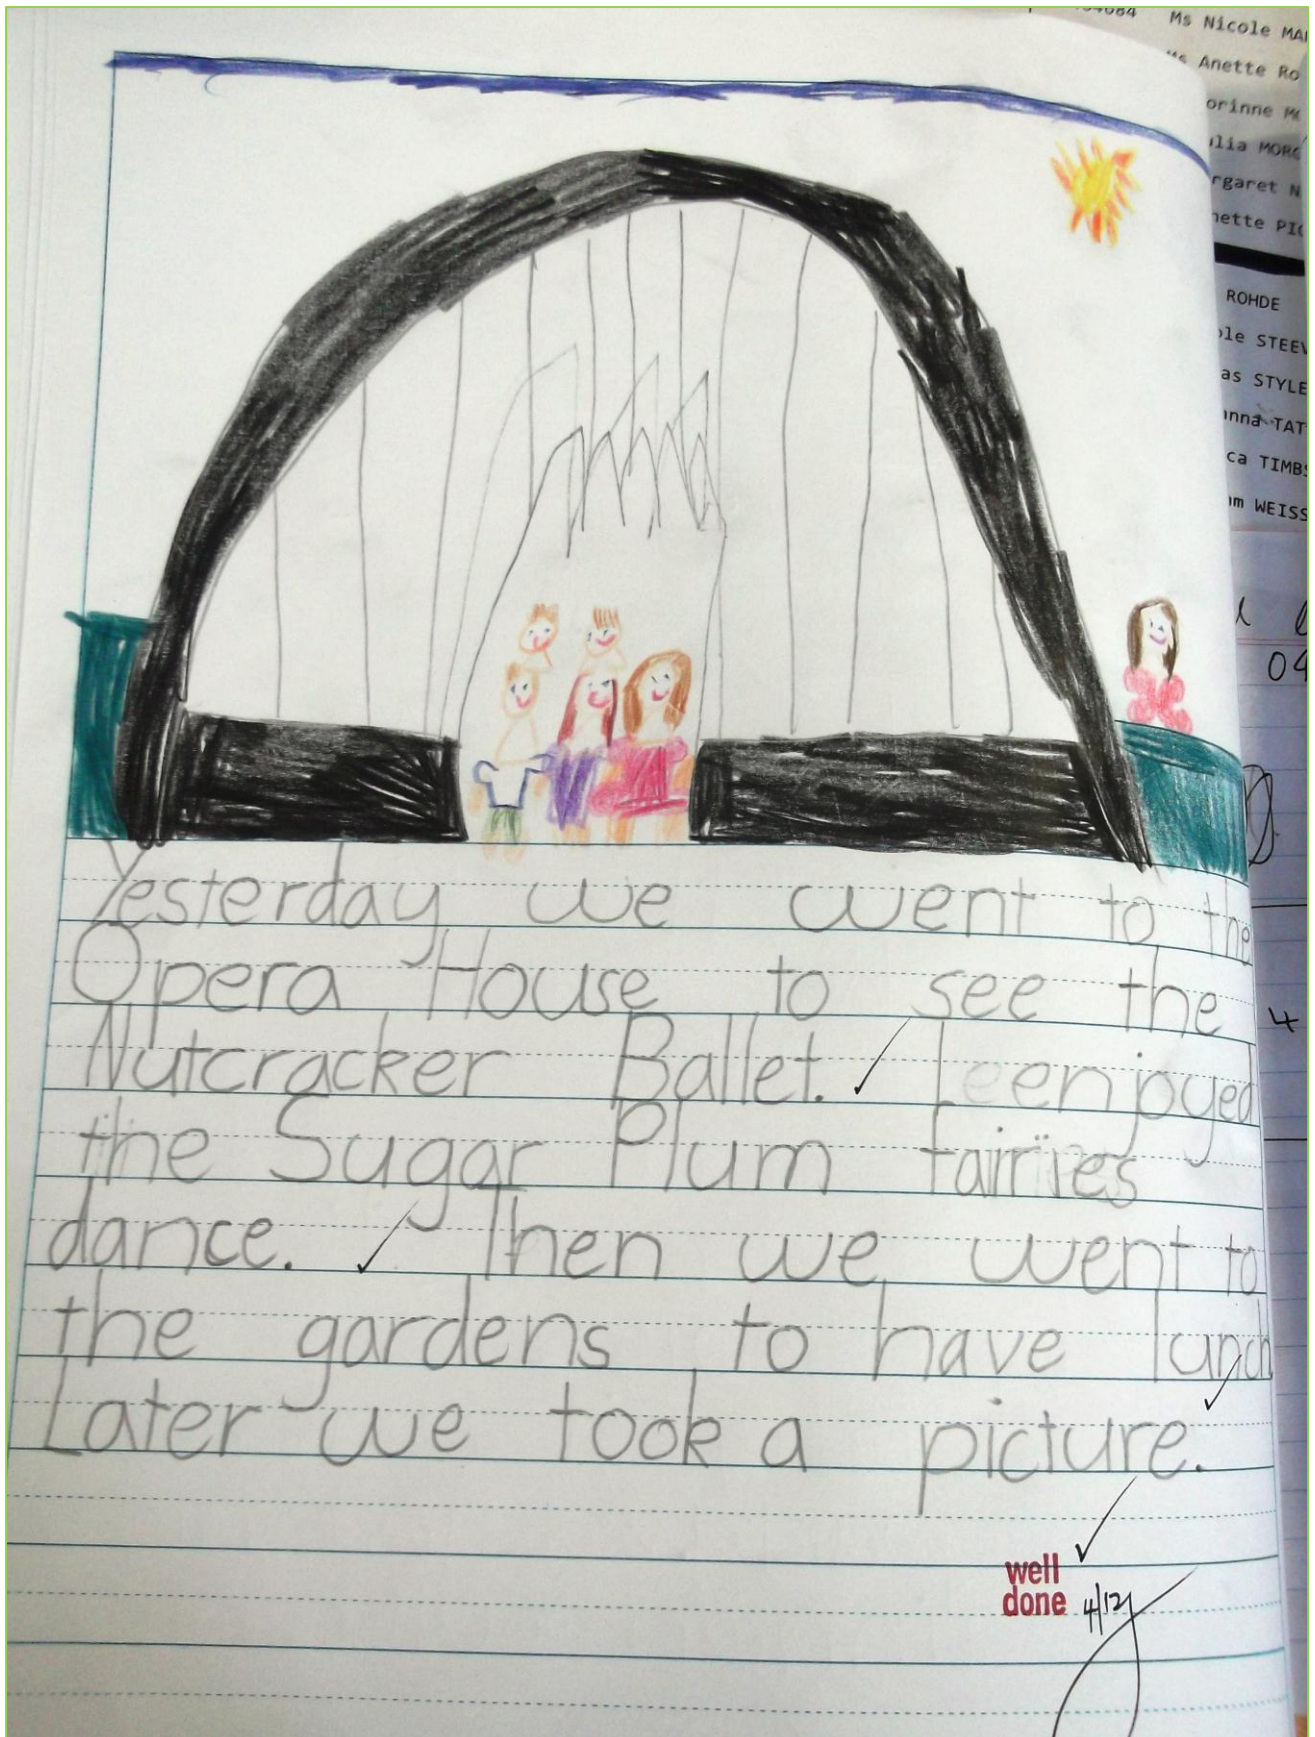 Ms Nicole
Anette Ro
ROHDE
STEEV
STYLE
TAT
TIMBS
WEISS
04
4
Yesterday we went to the
Opera House to see the
Nutcracker Ballet. I enjoyed
the Sugar Plum fairies
dance. Then we went to
the gardens to have lunch
Later we took a picture.
well
done 4/12